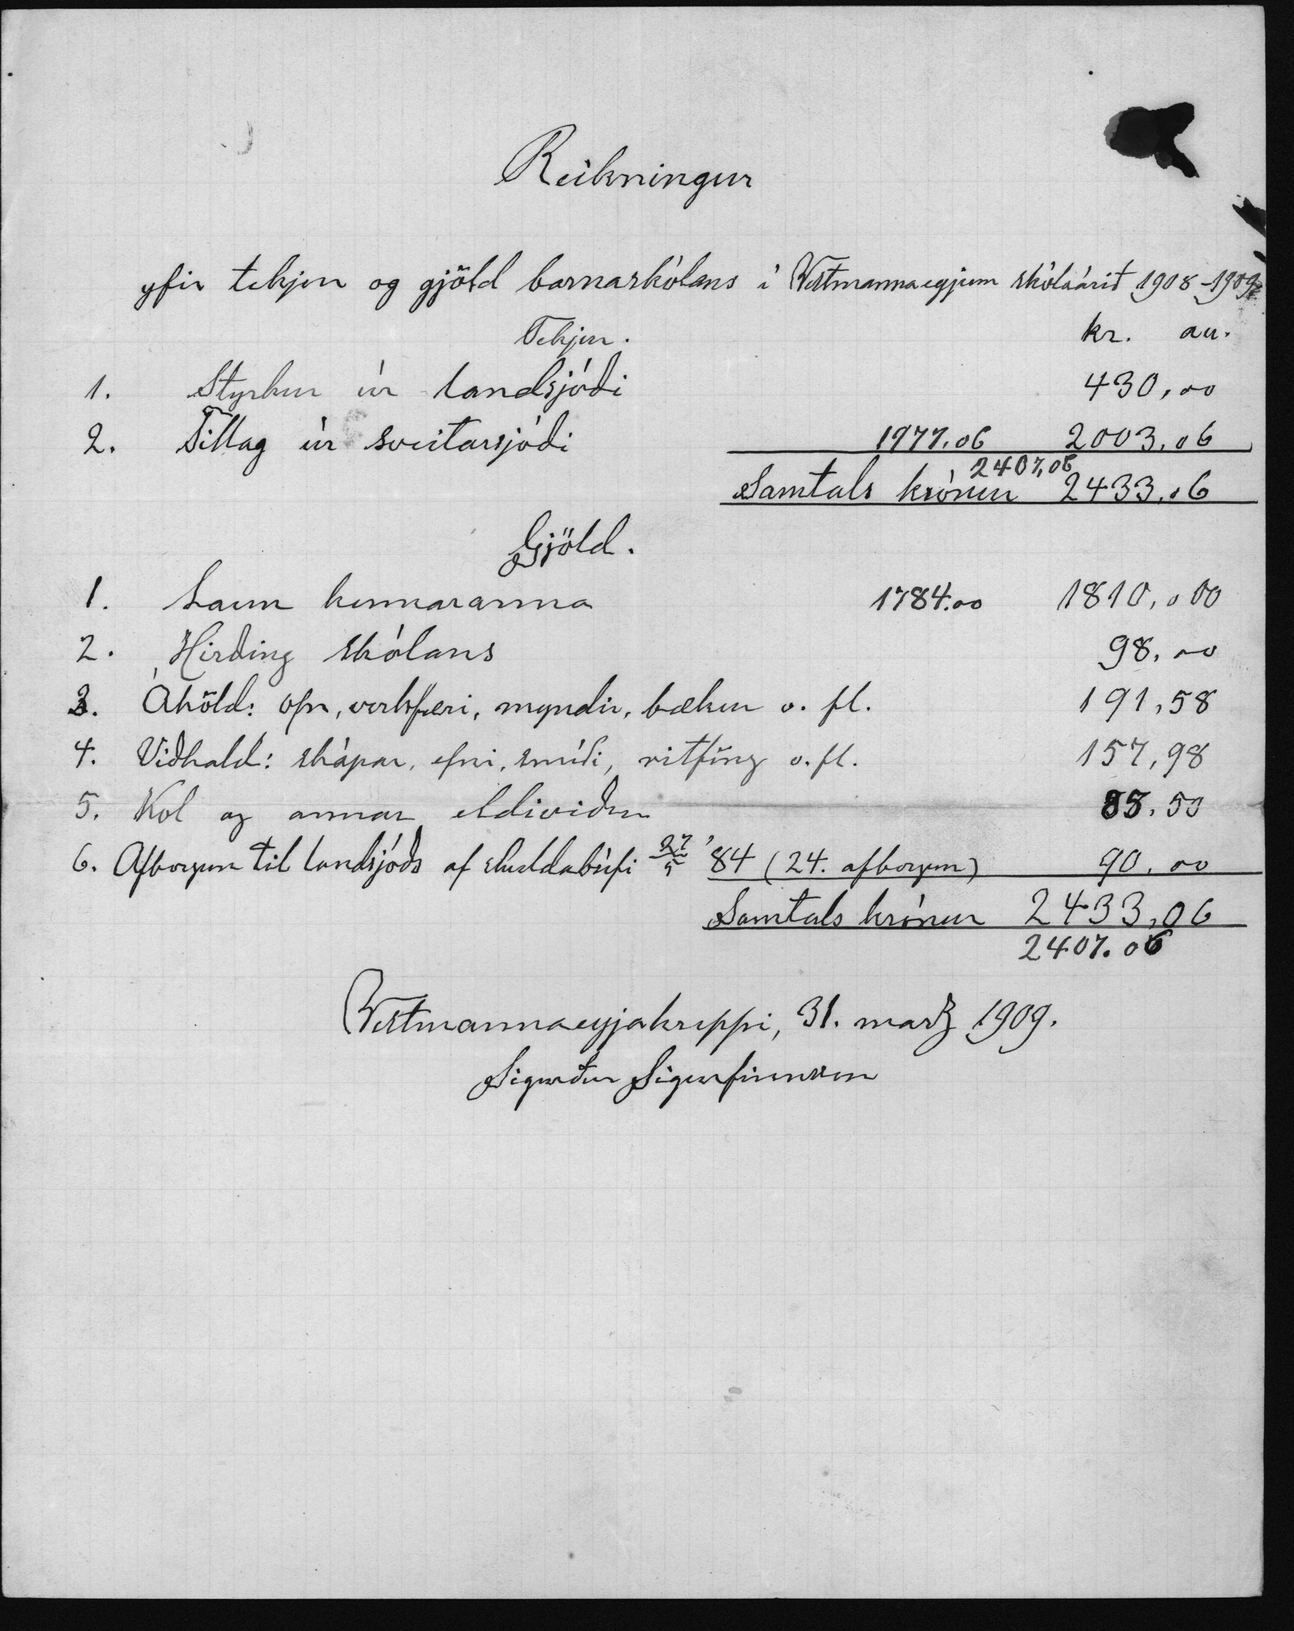 Reikningur
yfir tekjur og gjöld barnaskólans í Vestmannaeyjum skólaárið 1908-1909
Tekjur. kr. au.
1. Styrkur úr landsjóði 430,00
2. Tillag úr sveitarsjóði 1977.06 2003,06
2407,06
Samtals krónur 2433,06
Gjöld.
1. Laun kennaranna 1784.00 1810,00
2. Hirðing skólans 98,00
3. Áhöld: ofn, verkfæri, myndir, bækur o. fl. 191,58
4. Viðhald: skápar, efni, smíði, ritföng o. fl. 157,98
5. Kol og annar eldiviður 85,50
6. Afborgun til landsjóðs af skuldabréfi 27/5 '84 (24. afborgun) 90,00
Samtals krónur 2433,06
2407.06
Vestmannaeyjahreppi, 31. marz 1909.
Sigurður Sigurfinnsson